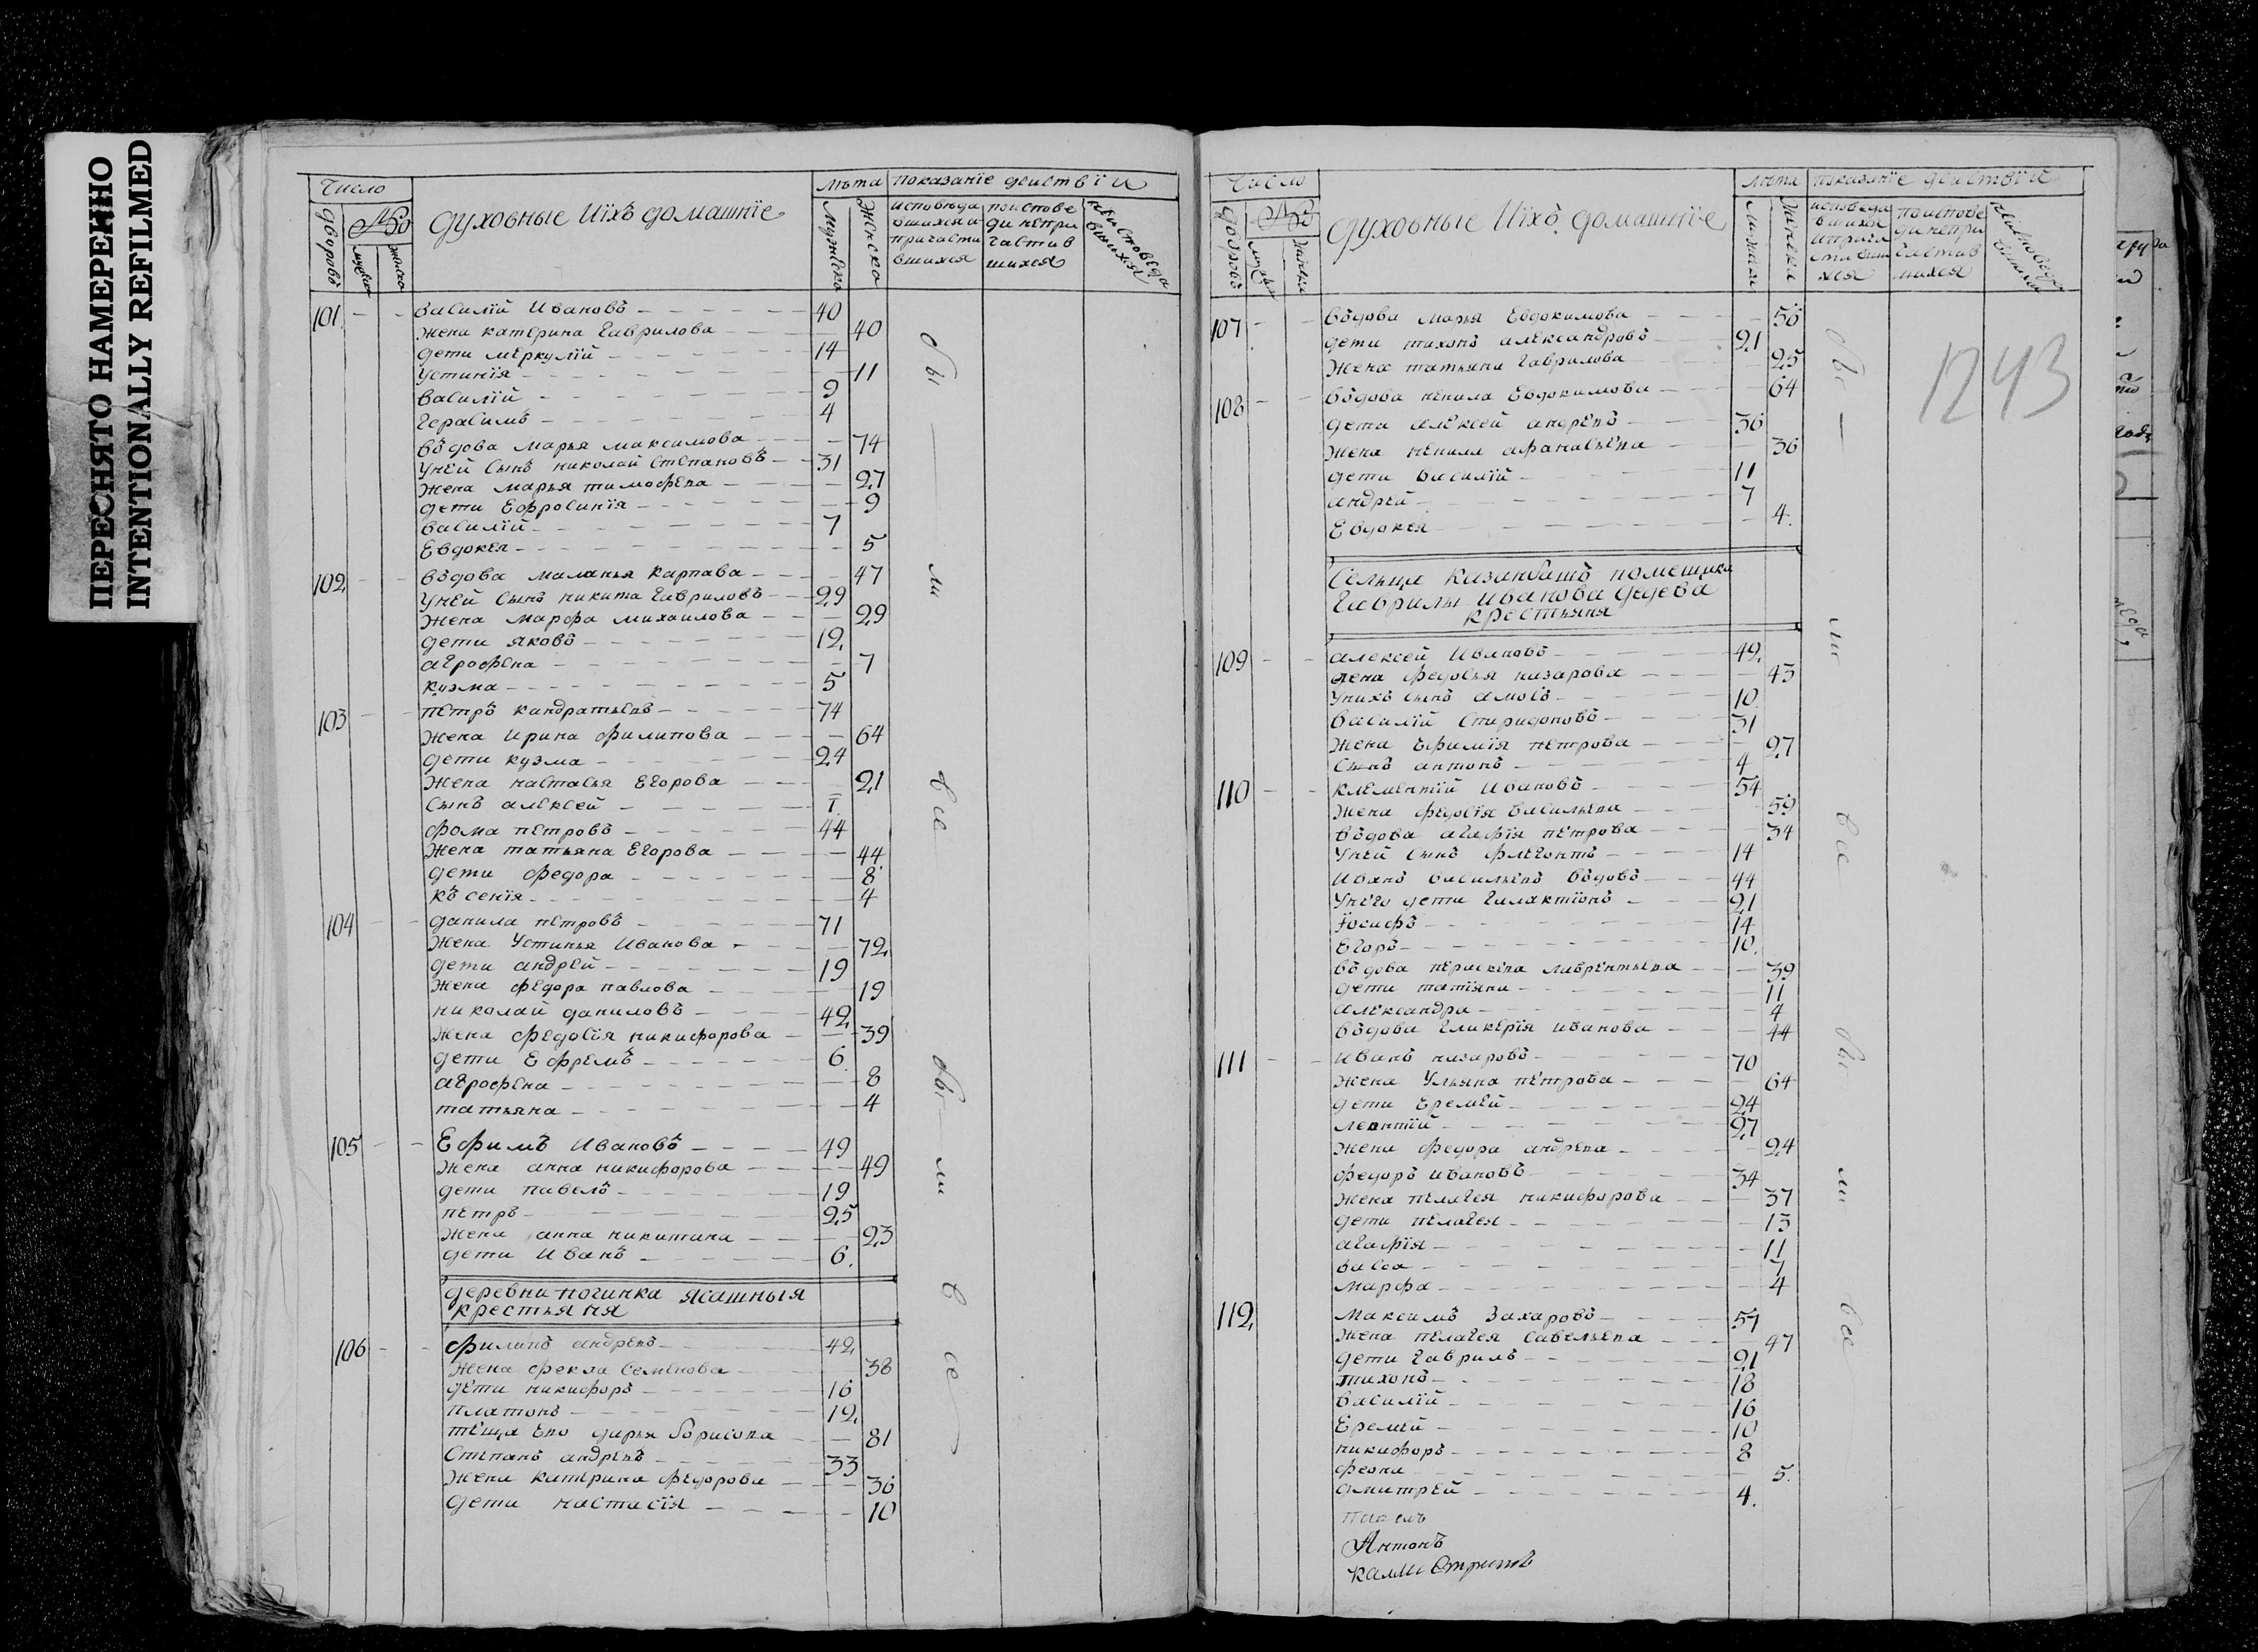 ПЕРЕСНЯТО НАМЕРЕННО
INTENTIONALLY REFILMED
Число
дворовъ
№
мужска
женска
духовные Иїхъ домашнїе
лѣта
Мужеска
Женска
показанїе деиствїи
исповѣда
вшихся и
причасти
вшихся
поиспове
ди непри
частив
шихся
неисповеда
вшихся
101 василїй Ивановъ 40
жена катерина Гаврилова 40
дети меркулїй 14
Устинїя 11
василїй 9
Герасимъ 4
вдова марья максимова 74
Уней сынъ николай степановъ 31
жена марья тимофева 27
дети Ефросинїя 9
василїй 7
Евдокея 5
102 вдова маланья карпава 47
Уней сынъ никита Гавриловъ 29
жена марфа михаилова 29
дети яковъ 12
агрофена 7
кузма 5
103 петръ кандратьевъ 74
жена ирина филипова 64
дети кузма 24
жена настасья Егорова 21
сынъ алексей 1
фома петровъ 44
жена татьяна Егорова 44
дети федора 8
къ сенїя 4
104 данила петровъ 71
жена Устинья Иванова 72
дети андрей 19
жена федора павлова 19
николай даниловъ 42
жена федосїя никифорова 39
дети Ефремъ 6
агрофена 8
татьяна 4
105 Ефимъ Ивановъ 49
жена анна никифорова 49
дети павелъ 19
петръ 25
жена анна никитина 23
дети Иванъ 6
деревни починка ясашныя
крестьяня
106 филипъ андревъ 42
жена фекла семенова 38
дети никифоръ 16
платонъ 12
теща Ево дарья борисова 81
степанъ андревъ 33
жена катерина федорова 36
дети настасїя 10
бы
ли
все
бы
ли
все
Число
дворовъ
№
мужска
женска
духовные Иїхъ домашнїе
лѣта
мужска
женска
показанїе деиствїй
исповеда
вшихся
ипричa
стивши
хся
поиспове
ди непри
частив
шихся
неисповеда
вшихся
1243
107 вдова марья Евдокимова 50
дети тихонъ александровъ 21
жена татьяна Гаврилова 25
108 вдова ненила Евдокимова 64
дети алексей андревъ 36
жена ненила афанасьева 36
дети василїй 11
андрей 7
Евдокея 4
Сельца казанбашъ помещика
Гаврилы иванова дедева
крестьяня
109 алексей Ивановъ 42
жена федосья назарова 43
Унихъ сынъ амосъ 10
василїй спиридоновъ 31
жена Ефимїя петрова 27
сынъ антонъ 4
110 клементїй Ивановъ 54
жена федосїя васильева 59
вдова агафїя петрова 34
Уней сынъ флегонтъ 14
Иванъ васильевъ вдовъ 44
Унего дети Галактїонъ 21
Їосифъ 14
Егоръ 10
вдова перасковa лаврентьева 39
дети татїяна 11
александра 4
вдова Гликерїя иванова 44
111 Иванъ назаровъ 70
жена Ульяна петрова 64
дети Еремей 24
леонтїй 27
жена федора андрева 24
федоръ ивановъ 34
жена пелагея никифорова 37
дети пелагея 13
агафїя 11
васса 7
марфа 4
112 максимъ Захаровъ 57
жена пелагея савельева 47
дети Гаврилъ 21
тихонъ 18
василїй 16
Еремей 10
никифоръ 8
феона 5
дмитрей 4
Антонъ
бы
ли
все
бы
ли
все